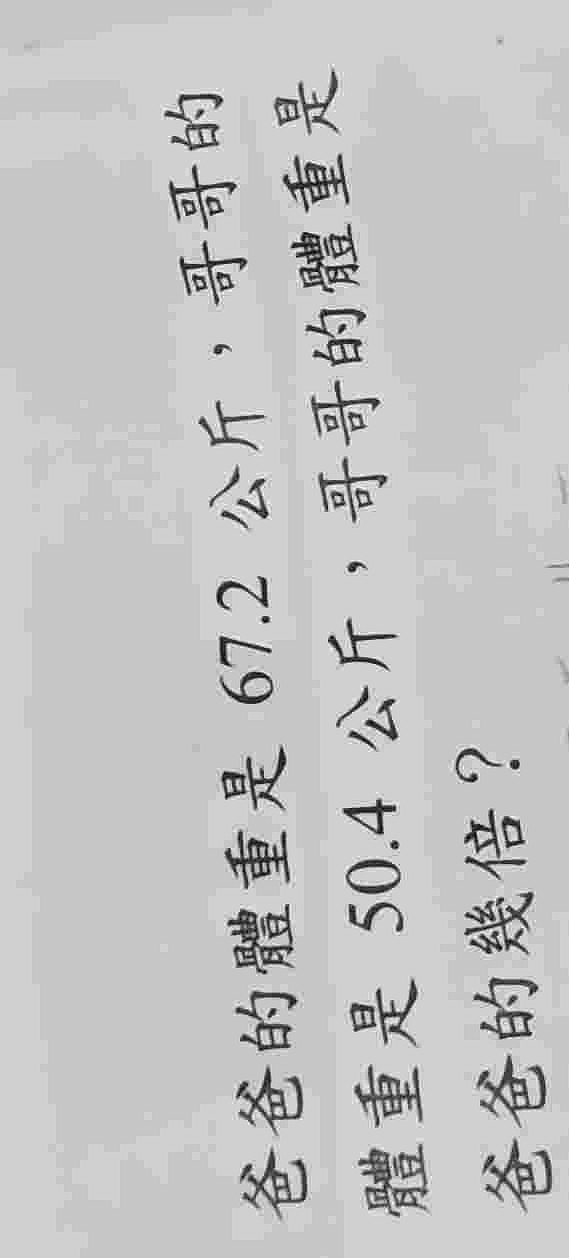 爸爸的體重是 67.2 公斤，哥哥的
體重是 50.4 公斤，哥哥的體重是
爸爸的幾倍？